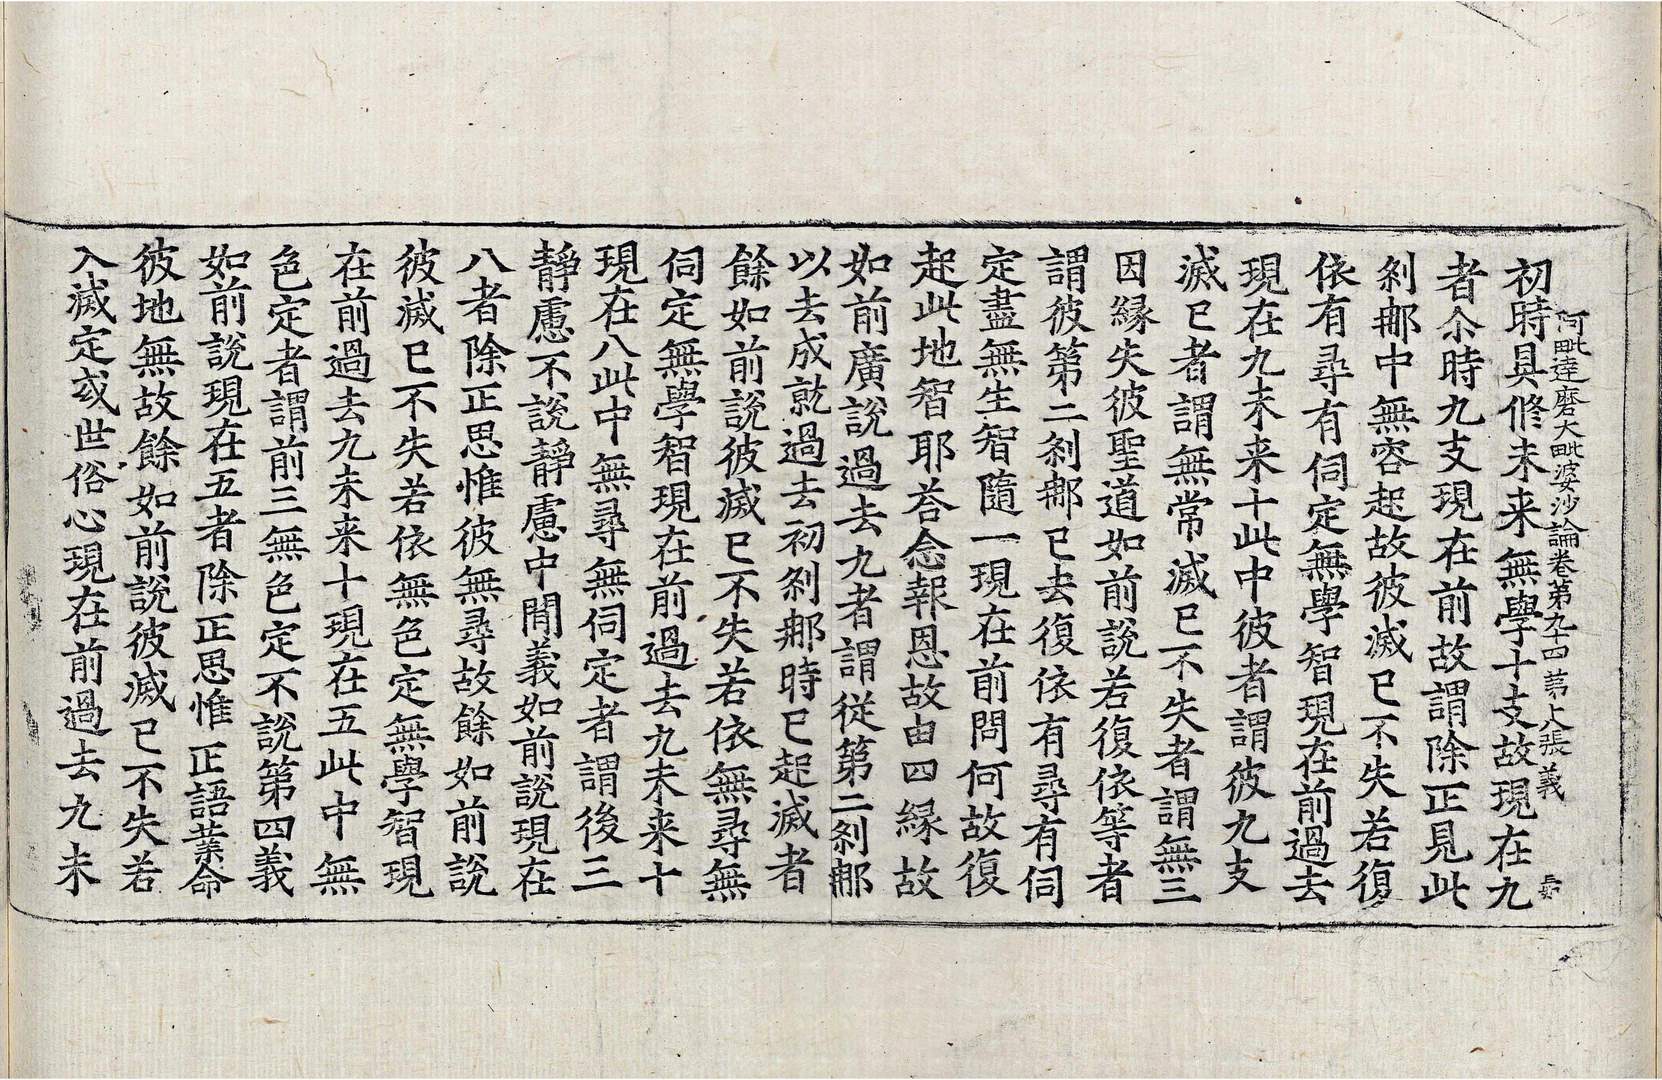 阿毗達磨大毗婆沙論卷第九十四 第人張 義
初時具脩未来無學十支故現在九
者尒時九支現在前故謂除正見此
刹那中無容起故彼滅已不失若復
依有尋有伺定無學智現在前過去
現在九未来十此中彼者謂彼九支
滅已者謂無常滅已不失者謂無三
因縁失彼聖道如前說若復依等者
謂彼第二刹那已去復依有尋有伺
定盡無生智隨一現在前問何故復
起此地智耶荅念報恩故由四縁故
如前廣說過去九者謂從第二刹那
以去成就過去初刹那時已起滅者
餘如前說彼滅已不失若依無尋無
伺定無學智現在前過去九未来十
現在八此中無尋無伺定者謂後三
靜慮不說靜慮中間義如前說現在
八者除正思惟彼無尋故餘如前說
彼滅已不失若依無色定無學智現
在前過去九未来十現在五此中無
色定者謂前三無色定不說第四義
如前說現在五者除正思惟正語業命
彼地無故餘如前說彼滅已不失若
入滅定或世俗心現在前過去九未